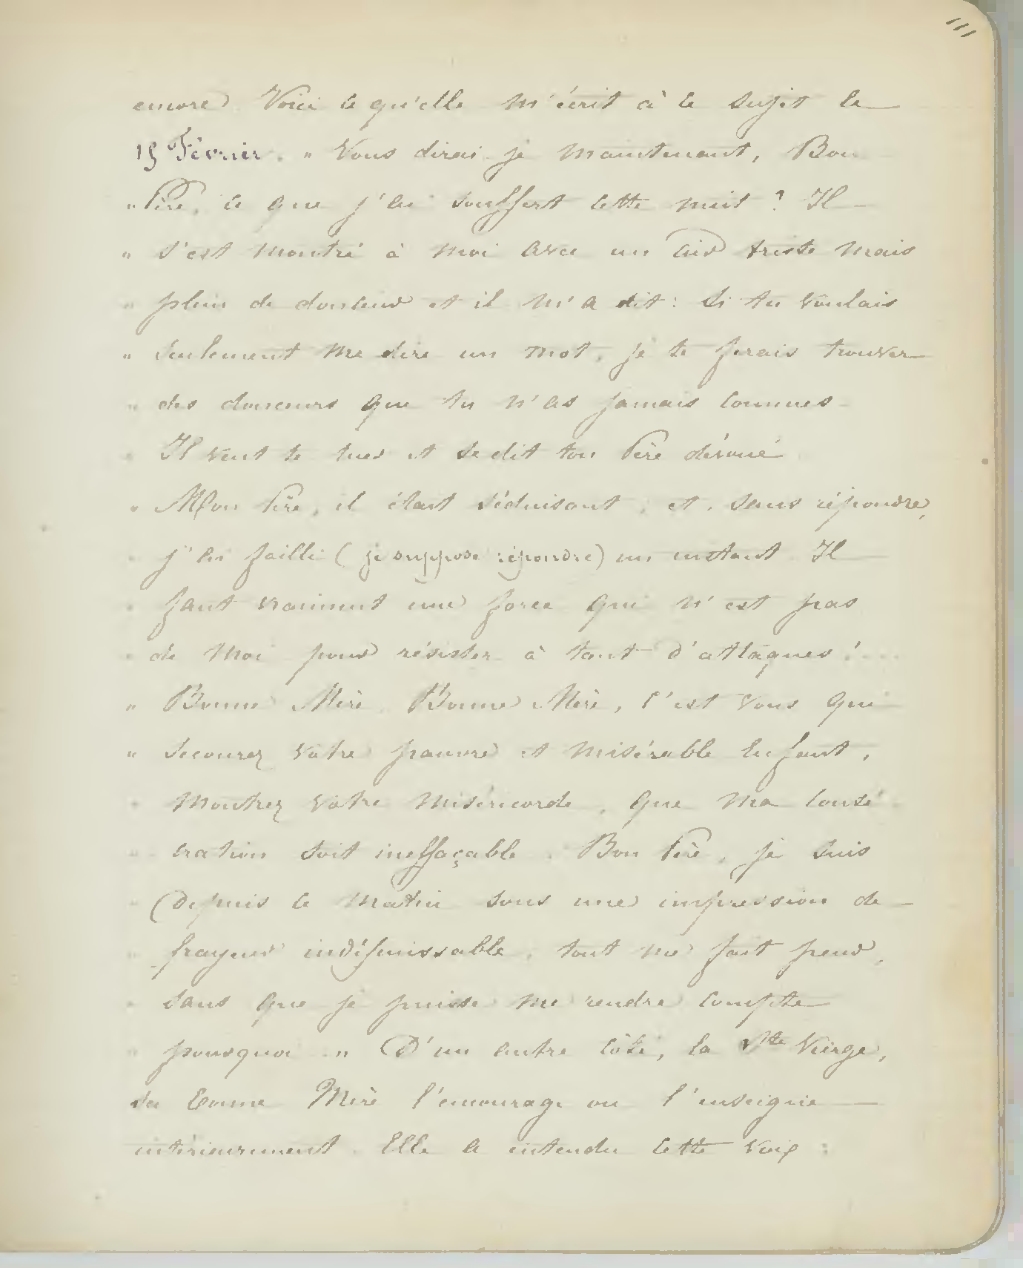 111
encore. Voici ce qu'elle m'écrit à ce sujet le
15 Février. " Vous dirai-je maintenant, Bon
" Père, ce que j'ai souffert cette nuit ? Il
" s'est montré à moi avec un air triste mais
" plein de douceur et il m'a dit : Si tu voulais
" seulement me dire un mot, je te ferais trouver
" des douceurs que tu n'as jamais connues.
" Il veut te tuer et se dit ton Père dévoué.
" Mon Père, il était séduisant, et, sans répondre,
" j'ai failli ( je suppose : répondre) un instant. Il
" faut vraiment une force qui n'est pas
" de moi pour résister à tant d'attaques ! ...
" Bonne Mère, Bonne Mère, c'est vous qui
" secourez votre pauvre et misérable Enfant,
" montrez votre miséricorde, que ma consé
" cration soit ineffaçable. Bon Père, je suis
" Depuis ce matin sous une impression de
" frayeur indéfinissable, tout me fait peur,
" sans que je puisse me rendre compte
" pourquoi. " D'un autre côté, la Ste Vierge,
sa bonne Mère l'encourage ou l'enseigne
intérieurement. Elle a entendu cette voix :